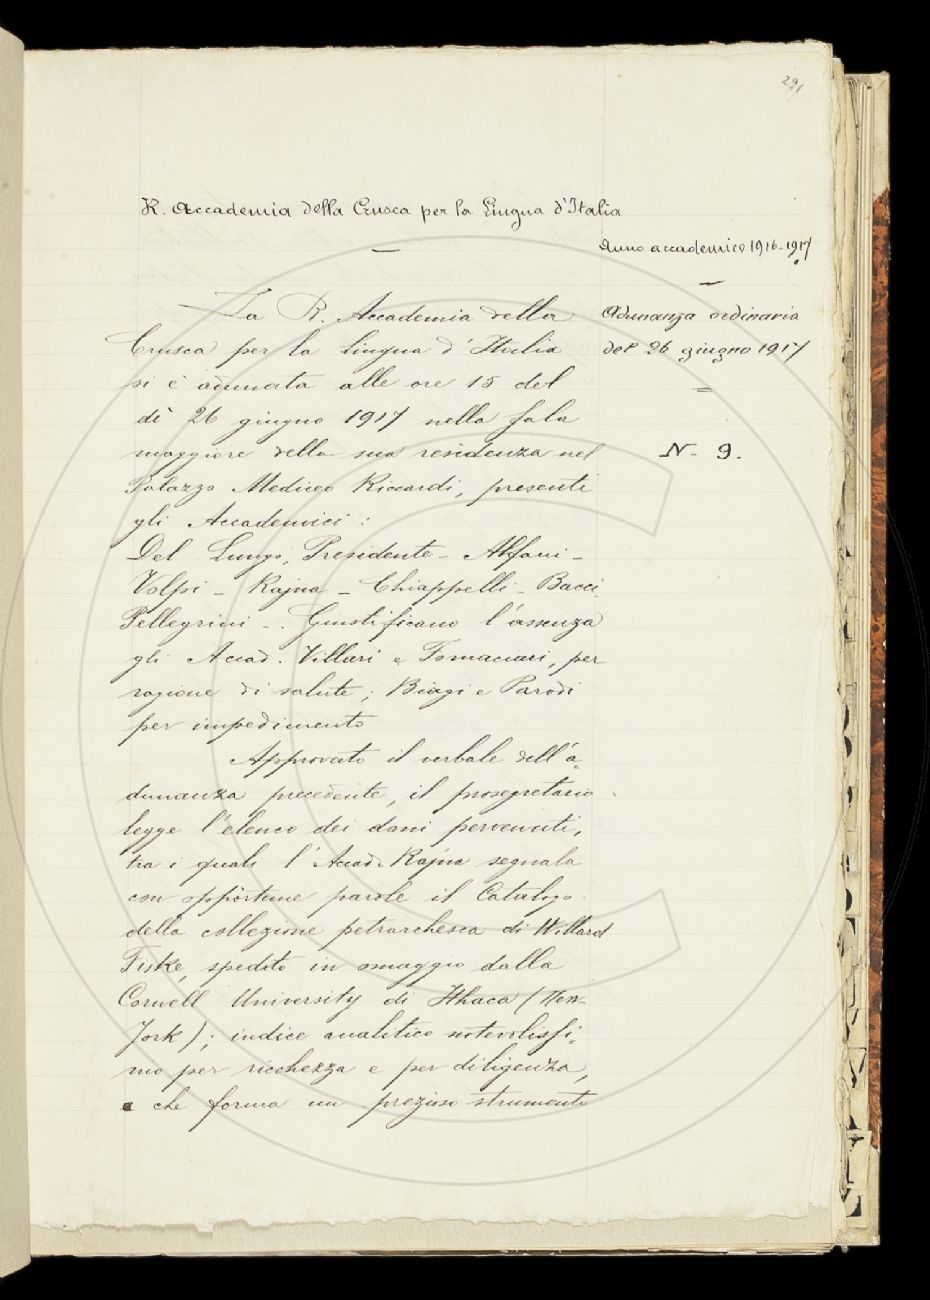 291
R. Accademia della Crusca per la Lingua d'Italia
Anno accademico 1916-1917
Adunanza ordinaria
del 26 giugno 1917
N- 9.
La R. Accademia della
Crusca per la lingua d'Italia
si è adunata alle ore 15 del
dì 26 giugno 1917 nella sala
maggiore della sua residenza nel
Palazzo Mediceo Riccardi, presenti
gli Accademici:
Del Lungo, Presidente - Alfani -
Volpi - Rajna - Chiappelli - Bacci
Pellegrini -. Giustificano l'assenza
gli Accad. Villari e Fornaciari, per
ragione di salute; Biagi e Parodi
per impedimento
Approvato il verbale dell'a-
dunanza precedente, il prosegretario
legge l'elenco dei doni pervenuti,
tra i quali l'Accad. Rajna segnala
con opportune parole il Catalogo
della collezione petrarchesca di Willard
Fiske, spedito in omaggio dalla
Cornell University di Ithaca (New-
York); indice analitico notevolissi-
mo per ricchezza e per diligenza,
e che forma un prezioso strumento